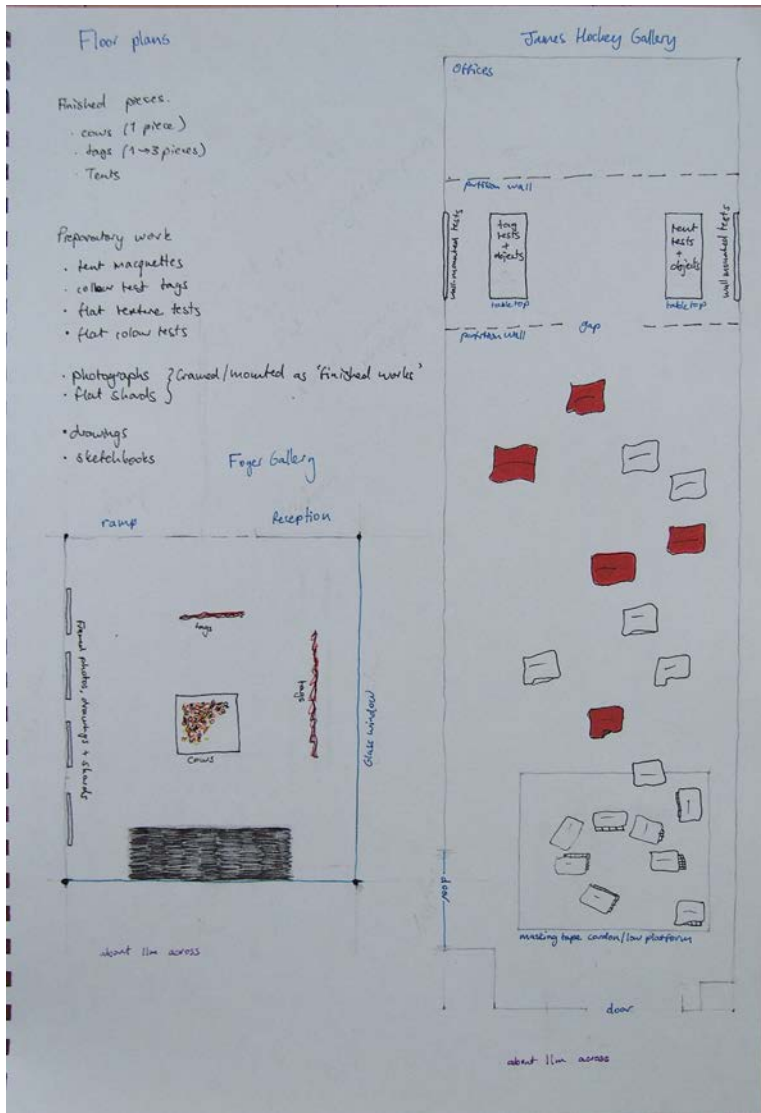 Floor plans
Finished pieces.
· cows (1 piece)
· tags (1→3 pieces)
· Tents
Preparatory work
· tent macquettes
· colour test tags
· flat texture tests
· flat colour tests
· photographs } framed/mounted as 'finished works'
· flat shards
· drawings
· sketchbooks
Foyer Gallery
ramp
Reception
Framed photos, drawings + shards
tags
tags
cows
Glass window
about 11m across
James Hockey Gallery
Offices
partition wall
wall-mounted tests
tags
tests
+
objects
tabletop
tent
tests
+
objects
tabletop
wall mounted tests
partition wall
gap
door
masking tape cordon/low platform
door
about 11m across